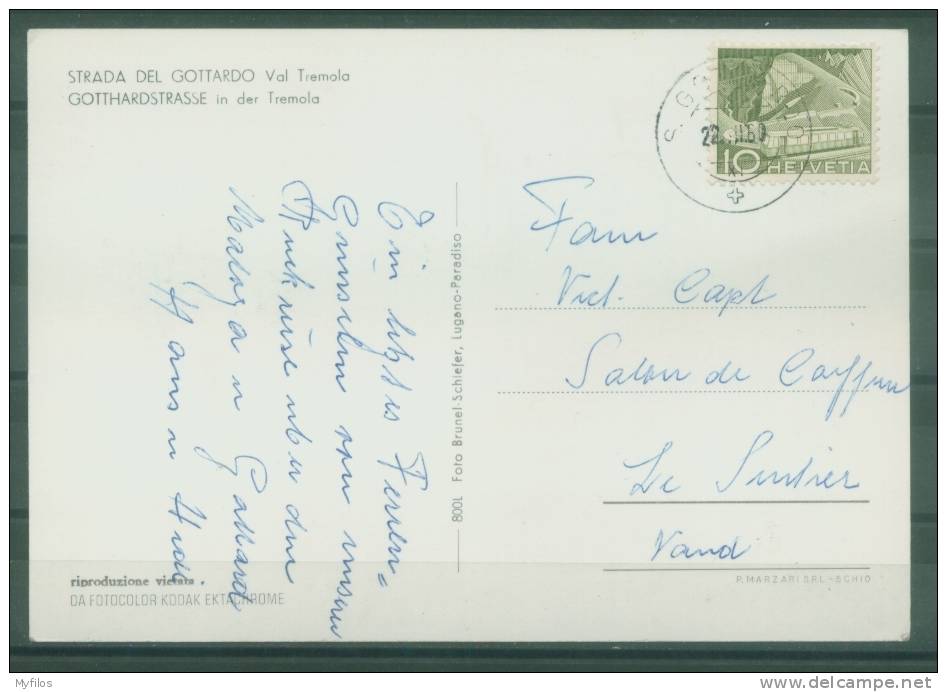 STRADA DEL GOTTARDO Val Tremola
GOTTHARDSTRASSE in der Tremola
S. GOTTARDO
22. 60
10 HELVETIA
Ein letztes Ferien=
von unserer
über den
Maloja u Gotthard
Hans u
8001 Foto Brunel-Schiefer, Lugano-Paradiso
Fam
Vict. Capt
Salon de Coiffure
Le Sentier
Vaud
riproduzione vietata.
DA FOTOCOLOR KODAK EKTACHROME
P. MARZARI S.R.L.-SCHIO
Myfilos
delcampe.net